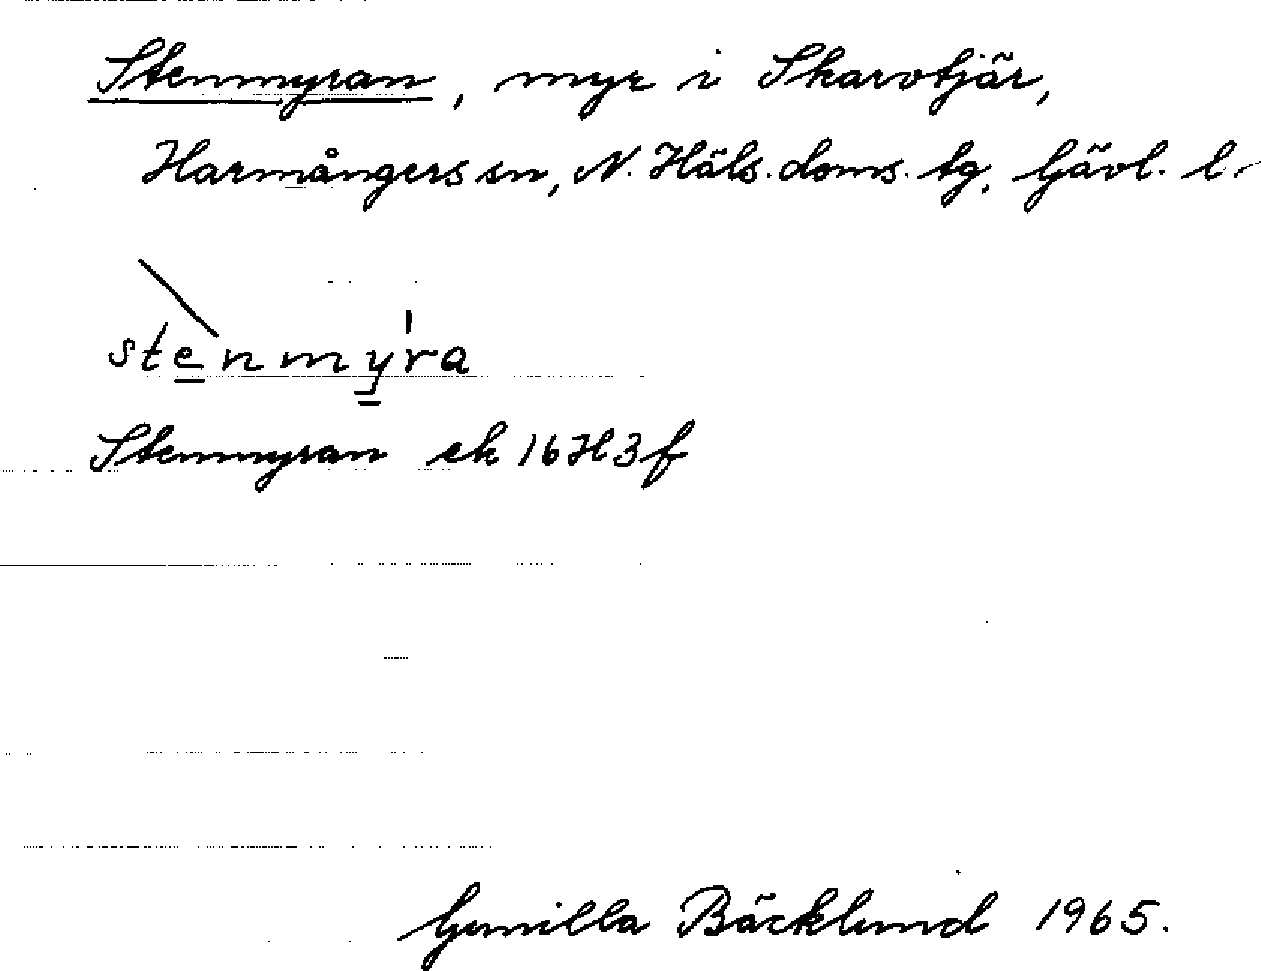 Stenmyran, myr i Skarvtjär,
Harmångers sn, N. Häls. doms. tg, Gävl. l.
stenmyra
Stenmyran ek 16H3f
Gunilla Bäcklund 1965.